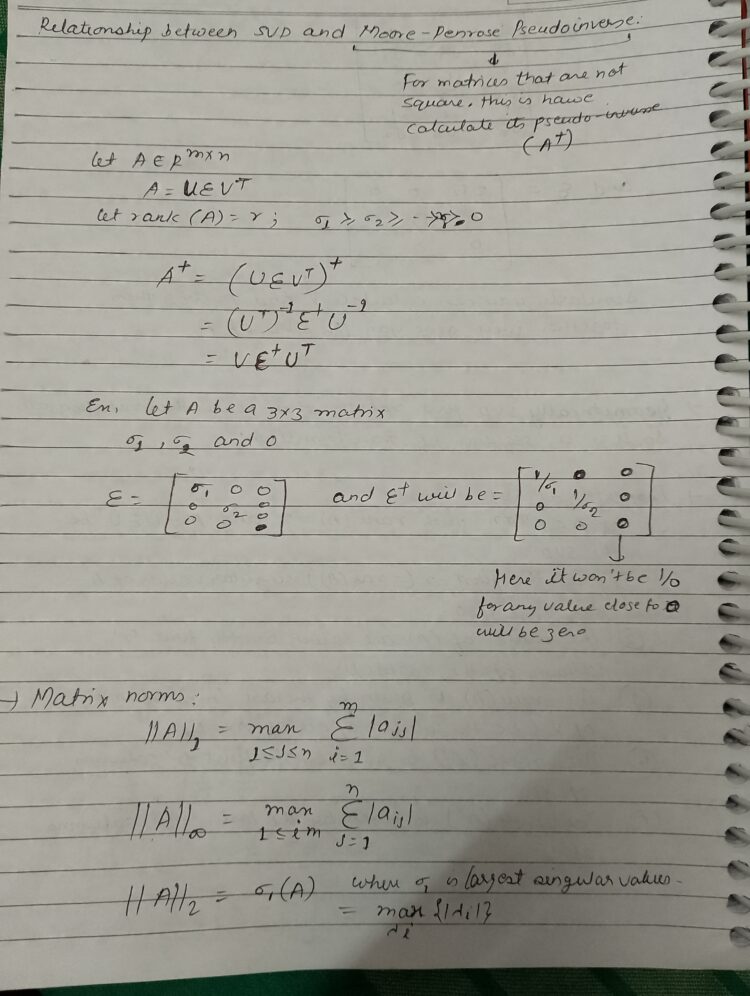 Relationship between SVD and Moore-Penrose Pseudoinverse:
For matrices that are not
square, this is have
calculate its pseudo-inverse
(A⁺)
Let A ∈ R^{m×n}
A = UΣV^T
Let rank (A) = r ; σ₁ ≥ σ₂ ≥ 0
A⁺ = (UΣV^T)⁺
= (V^T)⁻¹ Σ⁺ U⁻¹
= VΣ⁺U^T
Ex, Let A be a 3x3 matrix
σ₁, σ₂ and 0
Σ = [σ₁ 0 0 and Σ⁺ will be = [1/σ₁ 0 0
0 σ₂ 0 0 1/σ₂ 0
0 0 0] 0 0 0]
Here it won't be 1/0
for any value close to 0
will be zero
→ Matrix norms:
||A||₁ = max_{1≤j≤n} Σ_{i=1}^{m} |a_{ij}|
||A||_∞ = max_{1≤i m} Σ_{j=1}^{n} |a_{ij}|
||A||₂ = σ₁(A) where σ₁ is largest singular values.
= max_{λi} {|λi|}